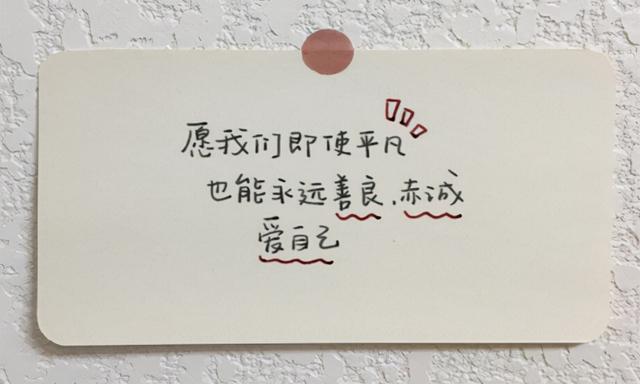 愿我们即使平凡
也能永远善良.赤诚
爱自己